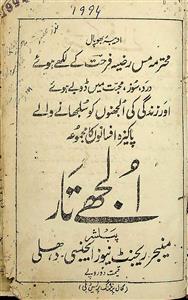 1994
ادیبۂ بھوپال
محترمہ مس رضیہ فرحت کے لکھے ہوئے
درد و سوز، محبت میں ڈوبے ہوئے
اور زندگی کی الجھنوں کو سلجھانے والے
پاکیزہ افسانوں کا مجموعہ
الجھے تار
پبلشر
منیجر ریجنٹ نیوز ایجنسی، دھلی
قیمت دو روپے